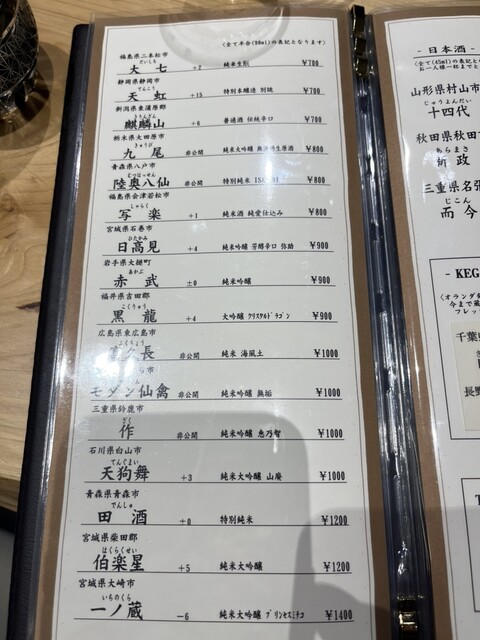 (全て半合(90ml)の表記となります)
福島県二本松市
だいしち
大七 +2 純米生酛 ¥700
静岡県静岡市
てんこう
天虹 +15 特別本醸造 別誂 ¥700
新潟県東蒲原郡
きりんざん
麒麟山 +6 普通酒 伝統辛口 ¥700
栃木県大田原市
きゅうび
九尾 非公開 純米大吟醸 生原酒 ¥800
青森県八戸市
むつはっせん
陸奥八仙 非公開 特別純米 ¥800
福島県会津若松市
しゃらく
写楽 +1 純米酒 純愛仕込み ¥800
宮城県石巻市
ひたかみ
日高見 +4 純米吟醸 芳醇辛口 弥助 ¥900
岩手県大槌町
あかぶ
赤武 ±0 純米吟醸 ¥900
福井県吉田郡
こくりゅう
黒龍 +4 大吟醸 クリスタルドラゴン ¥900
広島県東広島市
長 非公開 純米 海風土 ¥1000
市
モダン仙禽 非公開 純米吟醸 無垢 ¥1000
三重県鈴鹿市
ざく
作 非公開 純米吟醸 恵乃智 ¥1000
石川県白山市
てんぐまい
天狗舞 +3 純米大吟醸 山廃 ¥1000
青森県青森市
でんしゅ
田酒 +0 特別純米 ¥1200
宮城県柴田郡
はくらくせい
伯楽星 +5 純米大吟醸 ¥1200
宮城県大崎市
いちのくら
一ノ蔵 -6 純米大吟醸 プリンセスミチコ ¥1400
- 日本酒 -
(全て(45ml)の表
お一人様一杯まで
山形県村山市
じゅうよんだい
十四代
秋田県秋田
あらまさ
新政
三重県名張
じこん
而今
- KEG
(オランダ
今まで蔵
フレッ
千葉県
長野